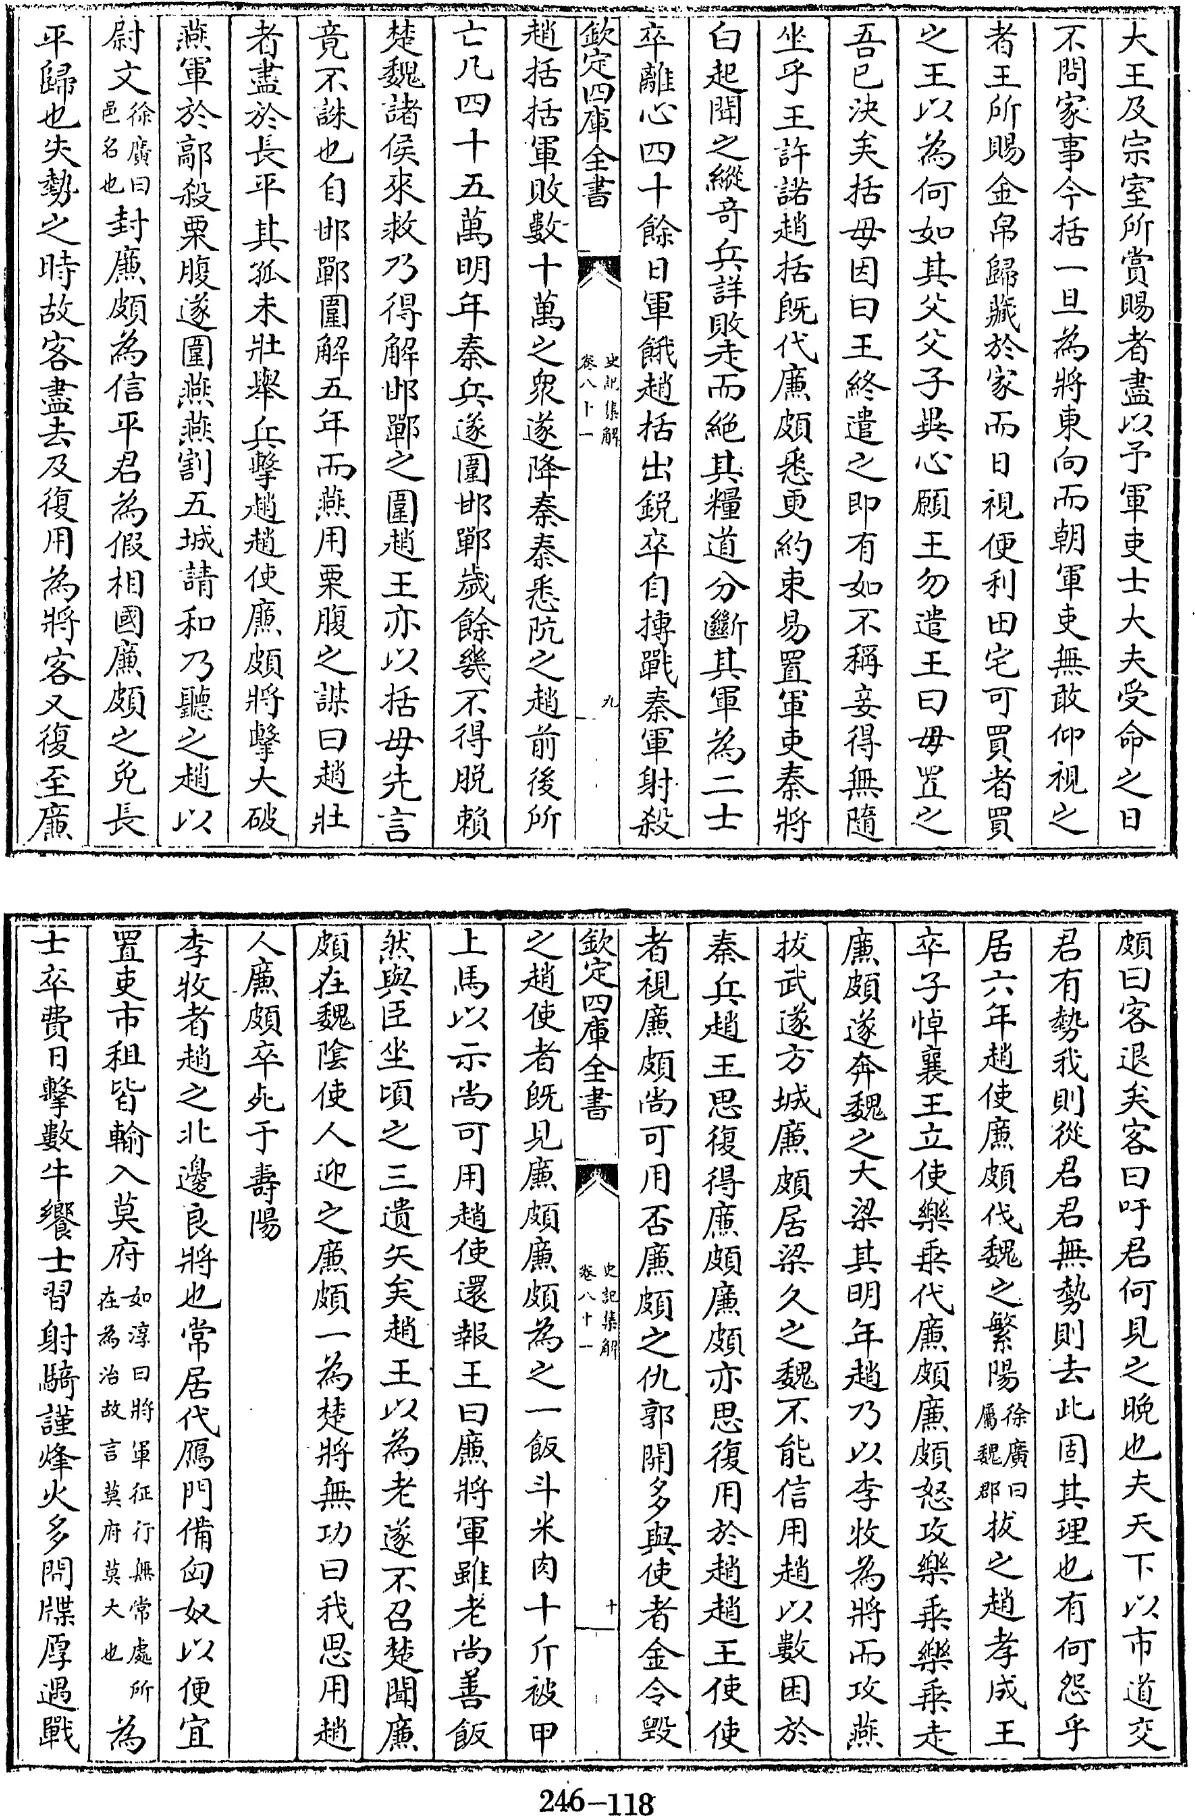 大王及宗室所賞賜者盡以予軍吏士大夫受命之日
不問家事今括一旦為將東向而朝軍吏無敢仰視之
者王所賜金帛歸藏於家而日視便利田宅可買者買
之王以為何如其父父子異心願王勿遣王曰母置之
吾已決矣括母因曰王終遣之即有如不稱妾得無隨
坐乎王許諾趙括既代廉頗悉更約束易置軍吏秦將
白起聞之縱奇兵詳敗走而絶其糧道分斷其軍為二士
卒離心四十餘日軍餓趙括出鋭卒自摶戰秦軍射殺
欽定四庫全書
史記集解
卷八十一
九
趙括括軍敗數十萬之衆遂降秦秦悉阬之趙前後所
亡凡四十五萬明年秦兵遂圍邯鄲歲餘幾不得脱賴
楚魏諸侯來救乃得解邯鄲之圍趙王亦以括母先言
竟不誅也自邯鄲圍解五年而燕用栗腹之謀曰趙壯
者盡於長平其孤未壯舉兵擊趙趙使廉頗將擊大破
燕軍於鄗殺栗腹遂圍燕燕割五城請和乃聽之趙以
尉文徐廣曰邑名也封廉頗為信平君為假相國廉頗之免長
平歸也失勢之時故客盡去及復用為將客又復至廉
頗曰客退矣客曰吁君何見之晚也夫天下以市道交
君有勢我則從君君無勢則去此固其理也有何怨乎
居六年趙使廉頗伐魏之繁陽徐廣曰屬魏郡拔之趙孝成王
卒子悼襄王立使樂乗代廉頗廉頗怒攻樂乗樂乗走
廉頗遂奔魏之大梁其明年趙乃以李牧為將而攻燕
拔武遂方城廉頗居梁久之魏不能信用趙以數困於
秦兵趙王思復得廉頗廉頗亦思復用於趙趙王使使
者視廉頗尚可用否廉頗之仇郭開多與使者金令毁
欽定四庫全書
史記集解
卷八十一
十
之趙使者既見廉頗廉頗為之一飯斗米肉十斤被甲
上馬以示尚可用趙使還報王曰廉將軍雖老尚善飯
然與臣坐頃之三遺矢矣趙王以為老遂不召楚聞廉
頗在魏陰使人迎之廉頗一為楚將無功曰我思用趙
人廉頗卒死于壽陽
李牧者趙之北邊良將也常居代鴈門備匈奴以便宜
置吏市租皆輸入莫府如淳曰將軍征行無常處所在為治故言莫府莫大也為
士卒費日擊數牛饗士習射騎謹烽火多間牒厚遇戰
246-118